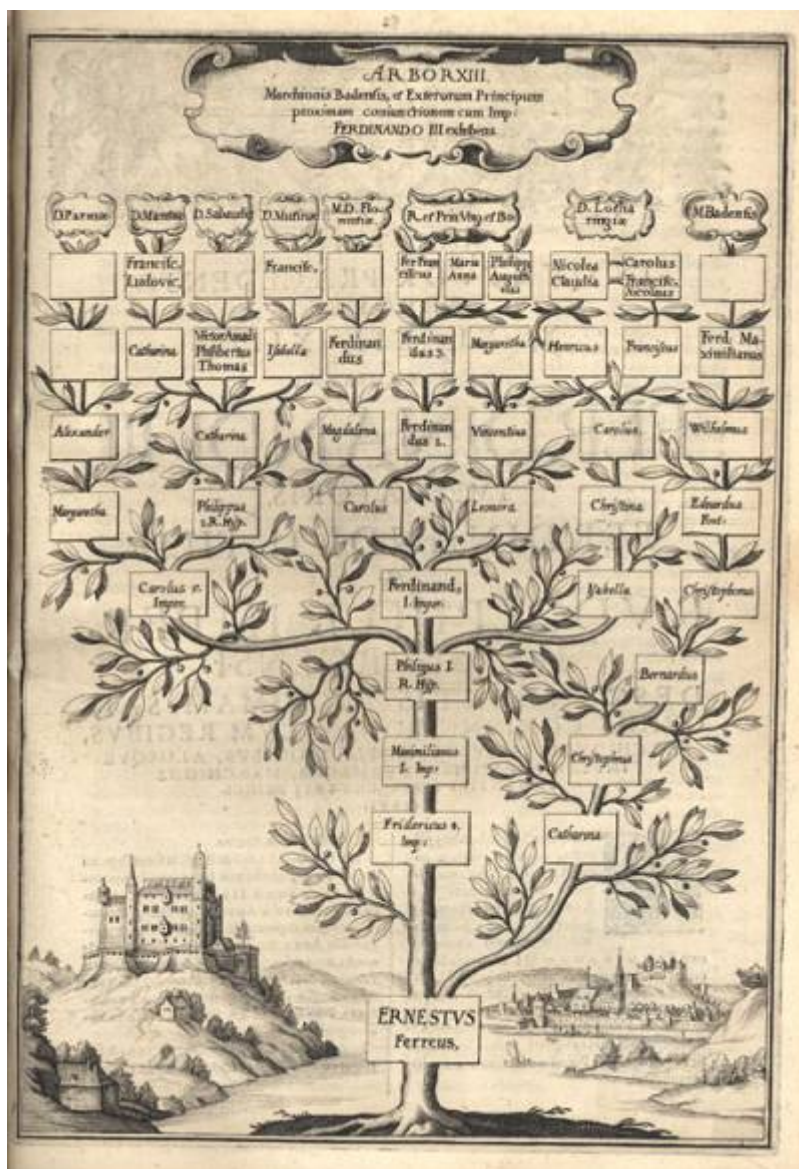 ARBOR XIII.
Marchionis Badensis, et Exterorum Principum
proximam coniunctionem cum Imp:
FERDINANDO III exhibens.
D. Parmæ
D. Mantuæ
D. Sabaudiæ
D. Mutinæ
M. D. Flo-
rentiæ
R. et Prin Vng. et Bo.
D. Lotha
ringiæ
M. Badensis
Francisc.
Ludovic.
Francisc.
Fer Fran
ciscus
Maria
Anna
Philipp
August
Nicolea
Claudia
Carolus
Francisc.
Nicolaus
Catharina
Victor Amad:
Philibertus
Thomas
Isabella
Ferdinan
dus
Ferdinan
dus 3.
Margaretha
Henricus
Franciscus
Ferd. Ma-
ximilianus
Alexander
Catharina
Magdalena
Ferdinan
dus 2.
Vincentius
Carolus.
Wilhelmus
Margaretha
Philippus
2. R. Hisp.
Carolus
Leonora
Christina
Eduardus
Fort:
Carolus 5.
Imper.
Ferdinand.
I. Imper.
Isabella
Christophorus
Philippus I.
R. Hisp.
Bernardus
Maximilianus
I. Imp:
Christophorus
Fridericus 4.
Imp:
Catharina
ERNESTVS
Ferreus,